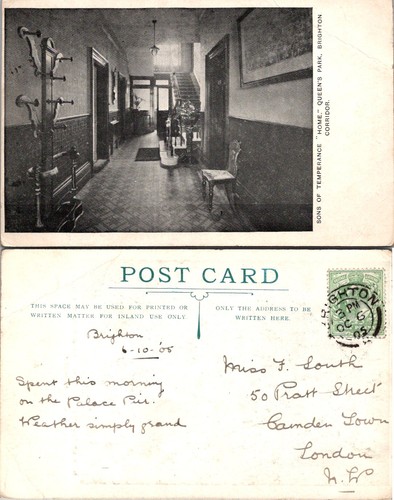 SONS OF TEMPERANCE "HOME," QUEEN'S PARK, BRIGHTON
CORRIDOR.
POST CARD
THIS SPACE MAY BE USED FOR PRINTED OR
WRITTEN MATTER FOR INLAND USE ONLY.
ONLY THE ADDRESS TO BE
WRITTEN HERE.
BRIGHTON
PM
OC 6
05
Brighton
6-10-'05
Spent this morning
on the Palace Pier.
Weather simply grand
Miss F. South
50 Pratt Street
Camden Town
London
N.W